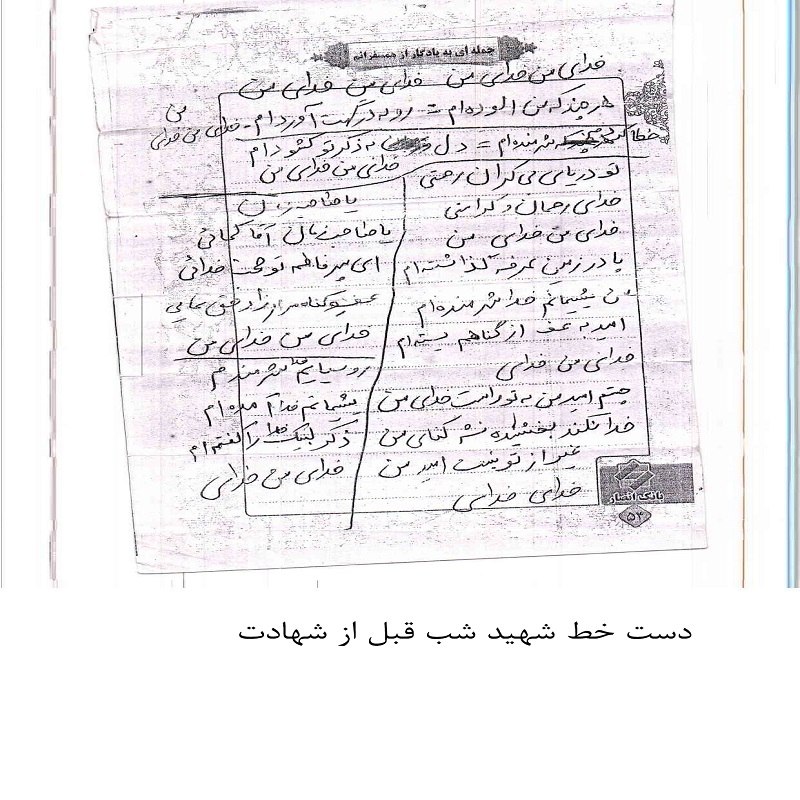 جمله ای به یادگار از همسفرانم
خدای من خدای من خدای من خدای من
هر چند که من آلوده‌ام = رو به درگهت آورده‌ام - خدای من خدای من
خطا کردم من شرمنده‌ام = دل به ذکر تو گشوده‌ام
خدای من خدای من
تو دریای بی کران رحمتی
خدای رحمان و
خدای من خدای من
پا در زمین عرفه گذاشته‌ام
من پشیمانم خدا شرمنده‌ام
امید به عفو از گناهم بسته‌ام
خدای من خدای
چشم امید من به تو است خدای من
خدا نکند بخشیده نشه گناه من
غیر از تو نیست امید من
خدای خدای
یا صاحب زمان
یا صاحب زمان آقا کجائی
ای پسر فاطمه تو حجت خدائی
خدای من خدای من
رو سیاهم خدا شرمنده‌ام
پشیمانم خدا آمده‌ام
ذکر لبیک خدا را گفته‌ام
خدای من خدای
بانک انصار
۵۳
دست خط شهید شب قبل از شهادت